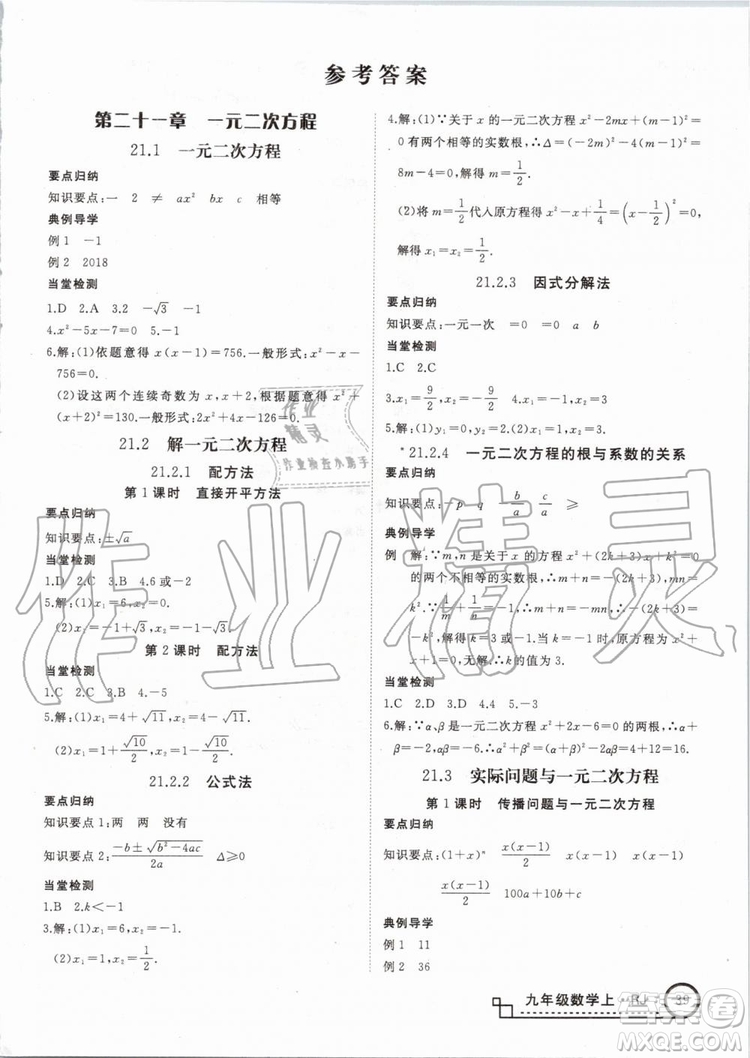 参考答案
第二十一章 一元二次方程
21.1 一元二次方程
要点归纳
知识要点:一 2 ≠ ax² bx c 相等
典例导学
例1 -1
例2 2018
当堂检测
1.D 2.A 3.2 -√3 -1
4.x²-5x-7=0 5.-1
6.解:(1)依题意得x(x-1)=756.一般形式:x²-x-
756=0.
(2)设这两个连续奇数为x,x+2,根据题意得x²+
(x+2)²=130.一般形式:2x²+4x-126=0.
21.2 解一元二次方程
21.2.1 配方法
第1课时 直接开平方法
要点归纳
知识要点:±√a
当堂检测
1.D 2.C 3.D 4.6或-2
5.解:(1)x₁=6,x₂=
(2)x₁=-2+√3,x₂=-2-√3.
第2课时 配方法
当堂检测
1.C 2.C 3.A 4.-5
5.解:(1)x₁=4+√11,x₂=4-√11.
(2)x₁=1+√10/2,x₂=1-√10/2.
21.2.2 公式法
要点归纳
知识要点1:两 两 没有
知识要点2:(-b±√(b²-4ac))/2a Δ≥0
当堂检测
1.B 2.k<-1
3.解:(1)x₁=6,x₂=1.
(2)x₁=0,x₂=-1/2.
4.解:(1)∵关于x的一元二次方程x²-2mx+(m-1)²=
0有两个相等的实数根,∴Δ=(-2m)²-4(m-1)²=
8m-4=0.解得m=1/2.
(2)将m=1/2代入原方程得x²-x+1/4=(x-1/2)²=0,
解得x₁=x₂=1/2.
21.2.3 因式分解法
要点归纳
知识要点:一元一次 =0 =0 a b
当堂检测
1.C 2.C
3.x₁=9/2,x₂=-9/2 4.x₁=3,x₂=9
5.解:(1)y₁=0,y₂=6.(2)x₁=1,x₂=2.
*21.2.4 一元二次方程的根与系数的关系
要点归纳
知识要点:-p q -b/a c/a ≥
典例导学
例 解:∵m,n是关于x的一元二次方程x²+(2k+3)x+k²=0
的两个不相等的实数根,∴m+n=-(2k+3),mn=
k².∵1/m+1/n=
-k².解得k₁=3,k₂=-1.当k=-1时,原方程为x²
+x+1=0,无解,∴k的值为3.
当堂检测
1.C 2.D 3.D 4.-2 5.-3
6.解:∵α,β是一元二次方程x²+2x-6=0的两根,∴α+
β=-2,αβ=-6.∴α²+β²=(α+β)²-2αβ=4+12=16.
21.3 实际问题与一元二次方程
第1课时 传播问题与一元二次方程
要点归纳
知识要点:(1+x)ⁿ x(x-1)/2 x(x-1) x(x-1)
x(x-1)/2 100a+10b+c
典例导学
例1 11
例2 36
九年级数学上·RJ 39
作业精灵
作业
精灵
作业检查小助手
答案圈
MXQE.COM